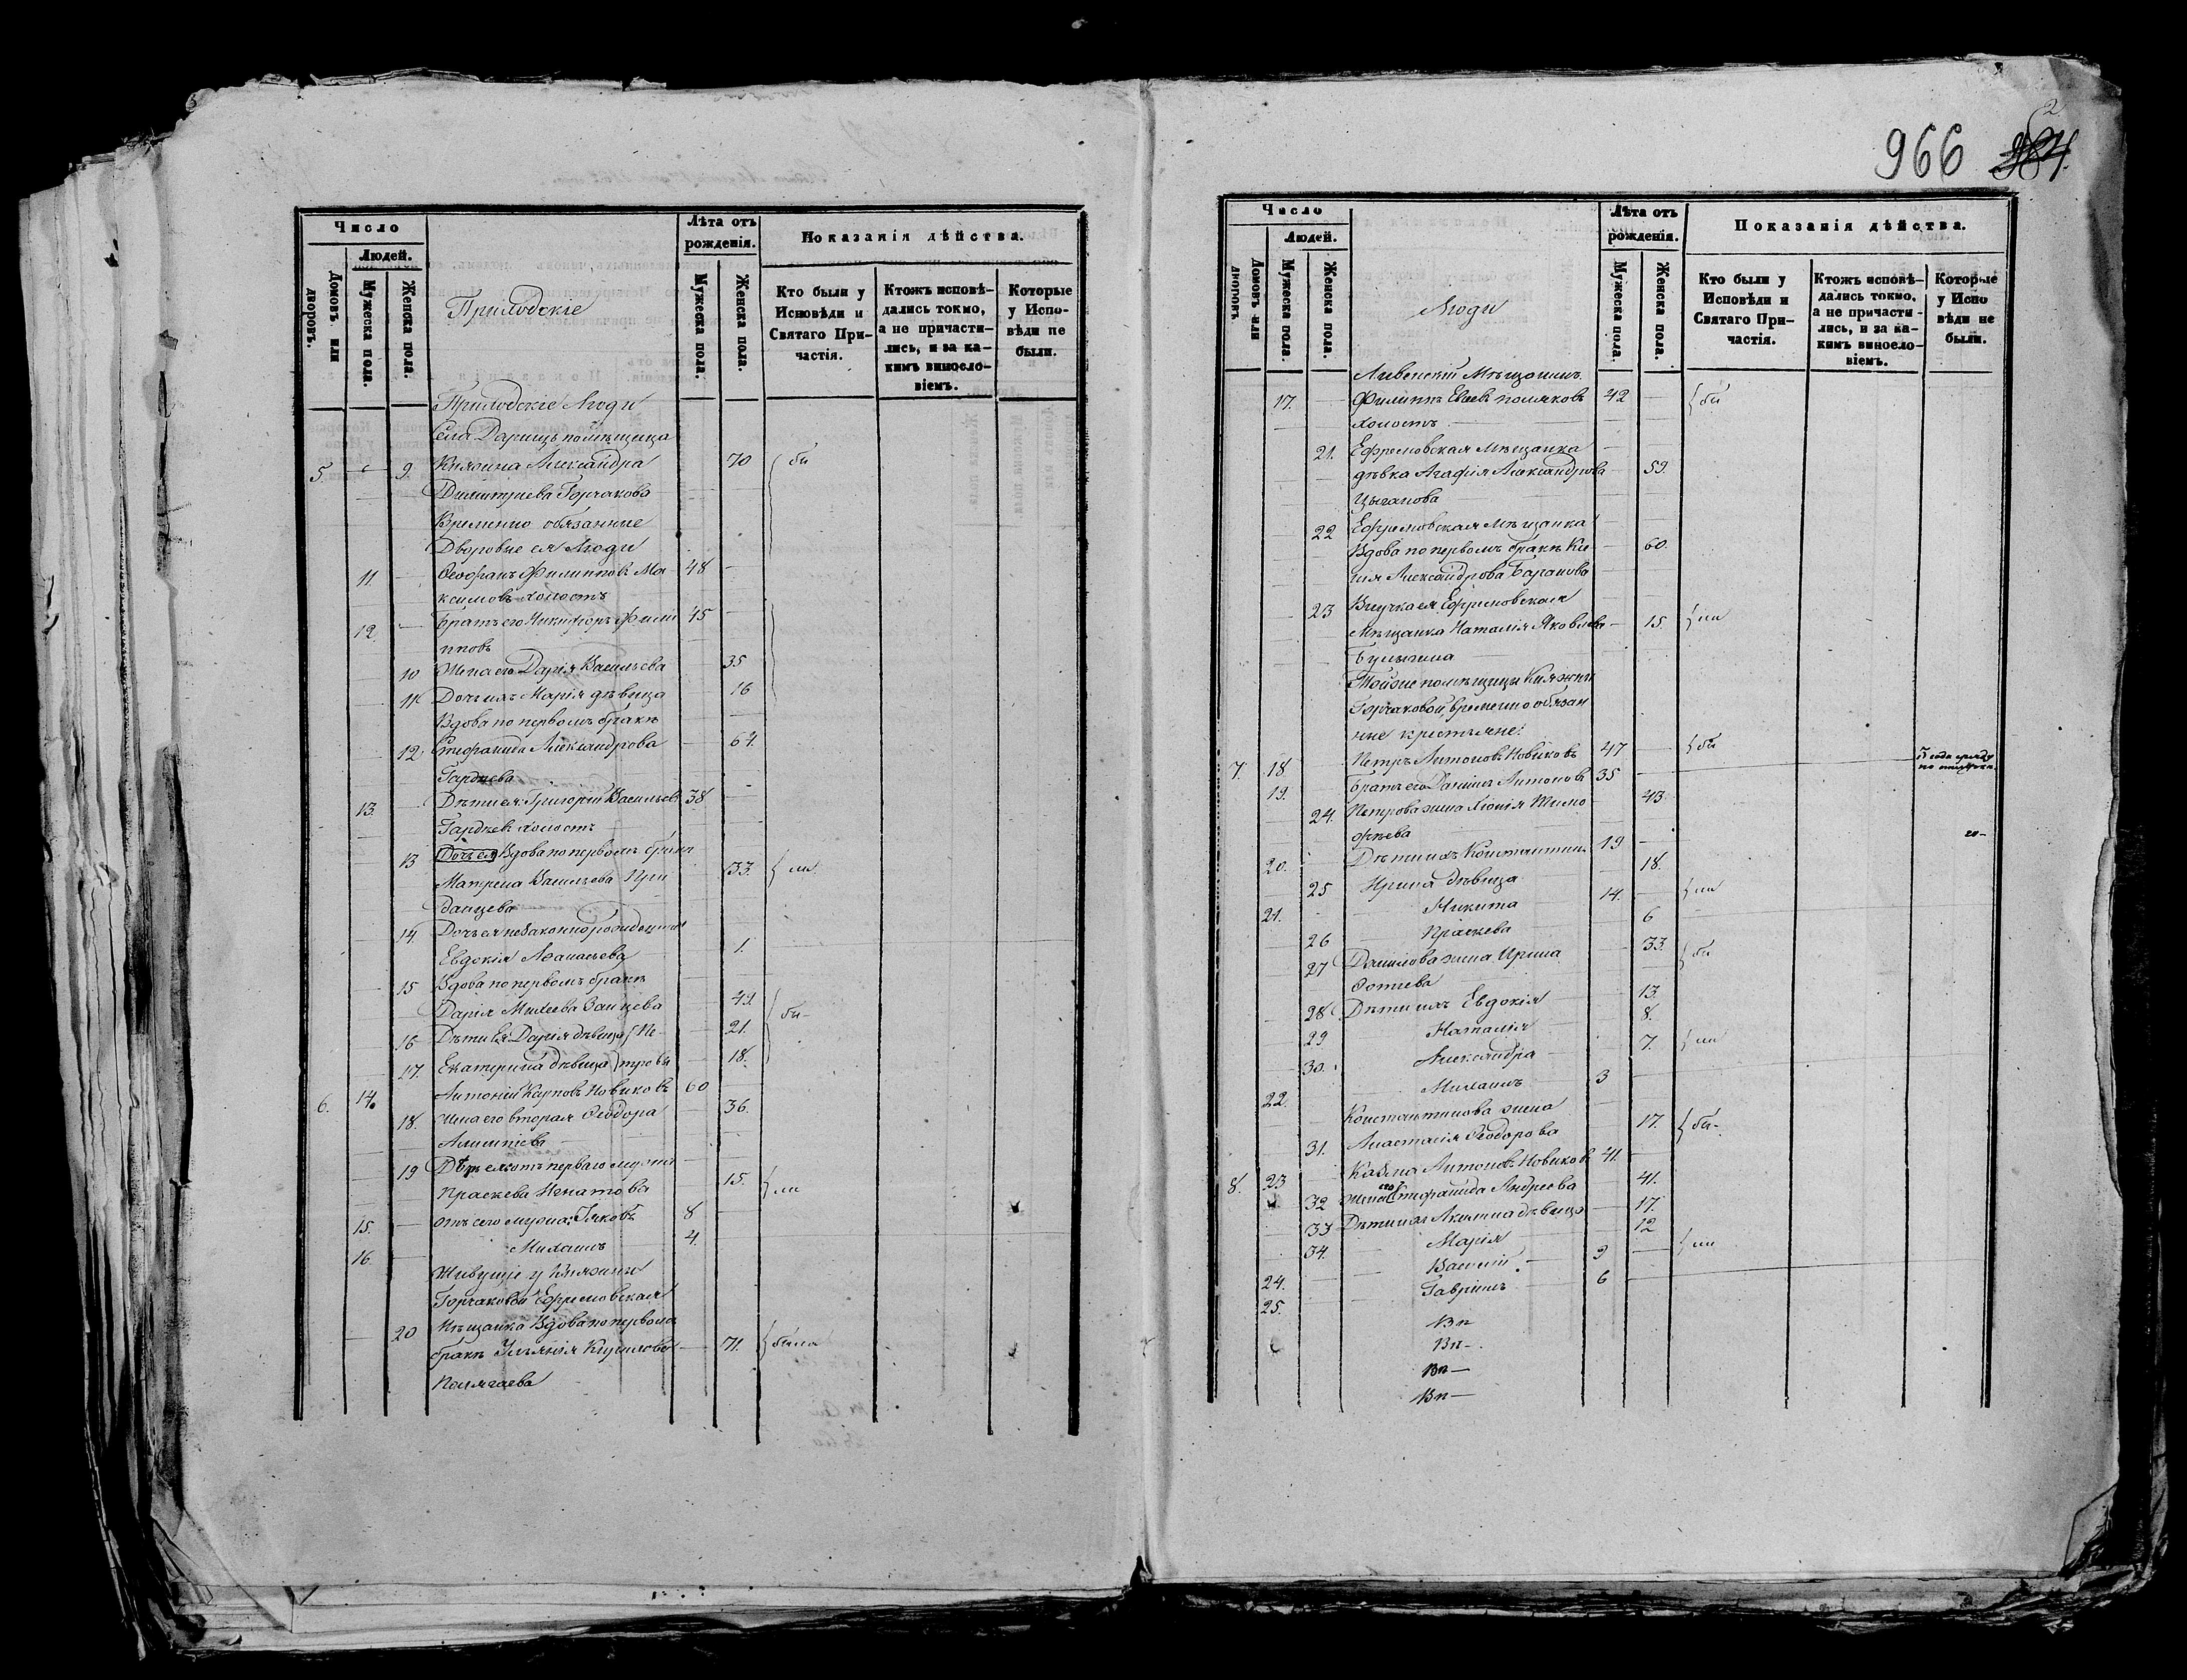 966
2
Число
Людей.
Домовъ или дворовъ.
Мужеска пола.
Женска пола.
Приходскіе
Лѣта отъ рожденія.
Мужеска пола.
Женска пола.
Показанія дѣйства.
Кто были у Исповѣди и Святаго Причастія.
Ктожъ исповѣдались токмо, а не причастились, и за какимъ винословіемъ.
Которые у Исповѣди не были.
Приходскіе Люди
Села помѣщица
5. 9. Княжна Александра 70 бы
Димитріева Горчакова
Временно обязанные
Дворовые ея Люди
11 Ѳеофанъ Филиповъ Ма- 48
ксимовъ холостъ
12. Братъ его Никифоръ Фили 45
пповъ
10 Жена его Дарія Васильева 35
11 Дочь ихъ Марія дѣвица 16
Вдова по первомъ бракѣ
12. Стефанида Александрова
13. Дѣти ея Григорій Васильевъ 38
холостъ
13 Дочь ея Вдова по первомъ бракѣ
Матрена Васильева 33. ма
14 Дочь ея незаконнорожденная
Евдокія 1
15 Вдова по первомъ бракѣ
Дарія Михеева 49. бы-
16 Дѣти Ея Дарія дѣвица Пе- 21.
17. Екатерина дѣвица тровы 18.
6. 14. Антоній Карповъ Новиковъ 60
18. Жена его вторая Ѳеодора 36.
19 отъ перваго мужа
Праскева Игнатова 15. ма
15. отъ сего мужа Іяковъ 8
16. Михаилъ 4.
Живущіе у Княжны
Горчаковой Ефремовская
20 Мѣщанка Вдова по первомъ
бракѣ Кирилова 71. была
Число
Людей.
Домовъ или дворовъ.
Мужеска пола.
Женска пола.
Люди
Лѣта отъ рожденія.
Мужеска пола.
Женска пола.
Показанія дѣйства.
Кто были у Исповѣди и Святаго Причастія.
Ктожъ исповѣдались токмо, а не причастились, и за какимъ винословіемъ.
Которые у Исповѣди не были.
Ливенскій Мѣщанинъ
17. Филиппъ Поляковъ 42 бы
Холостъ
21. Ефремовская Мѣщанка
дѣвка Агафія Александрова 59.
Цыганова
22 Ефремовская Мѣщанка
Вдова по первомъ бракѣ 60.
Александрова Баранова
23 Внучка ея Ефремовская
Мѣщанка Наталія Яковлева 15. ма
Тойже помѣщицы Княжны
Горчаковой временно обязан
ные крестьяне:
7. 18 Петръ Антоновъ Новиковъ 47 бы
19. Братъ его Даніилъ Антоновъ 35
24. Петрова жена Хіонія Тимо 43
фѣева
20. Дѣти ихъ Константинъ 19
25 Ирина дѣвица 18.
21. Никита 14. ма
26 Праскева 6
27 Данилова жена Ирина 33. бы
Фотіева
28 Дѣти ихъ Евдокія 13.
29 Наталія 8.
30. Александра 7. ма
22. Михаилъ 3
Константинова жена
31. Анастасія Ѳеодорова 17. бы-
8. 23 Казма Антоновъ Новиковъ 41.
32 Жена его Стефанида Андреева 41.
33 Дѣти ихъ Акилина дѣвица 17.
34. Марія 12
24. Василій 9 ма
25. Гавріилъ 6
Вп
Вп-
Вп-
Вп-